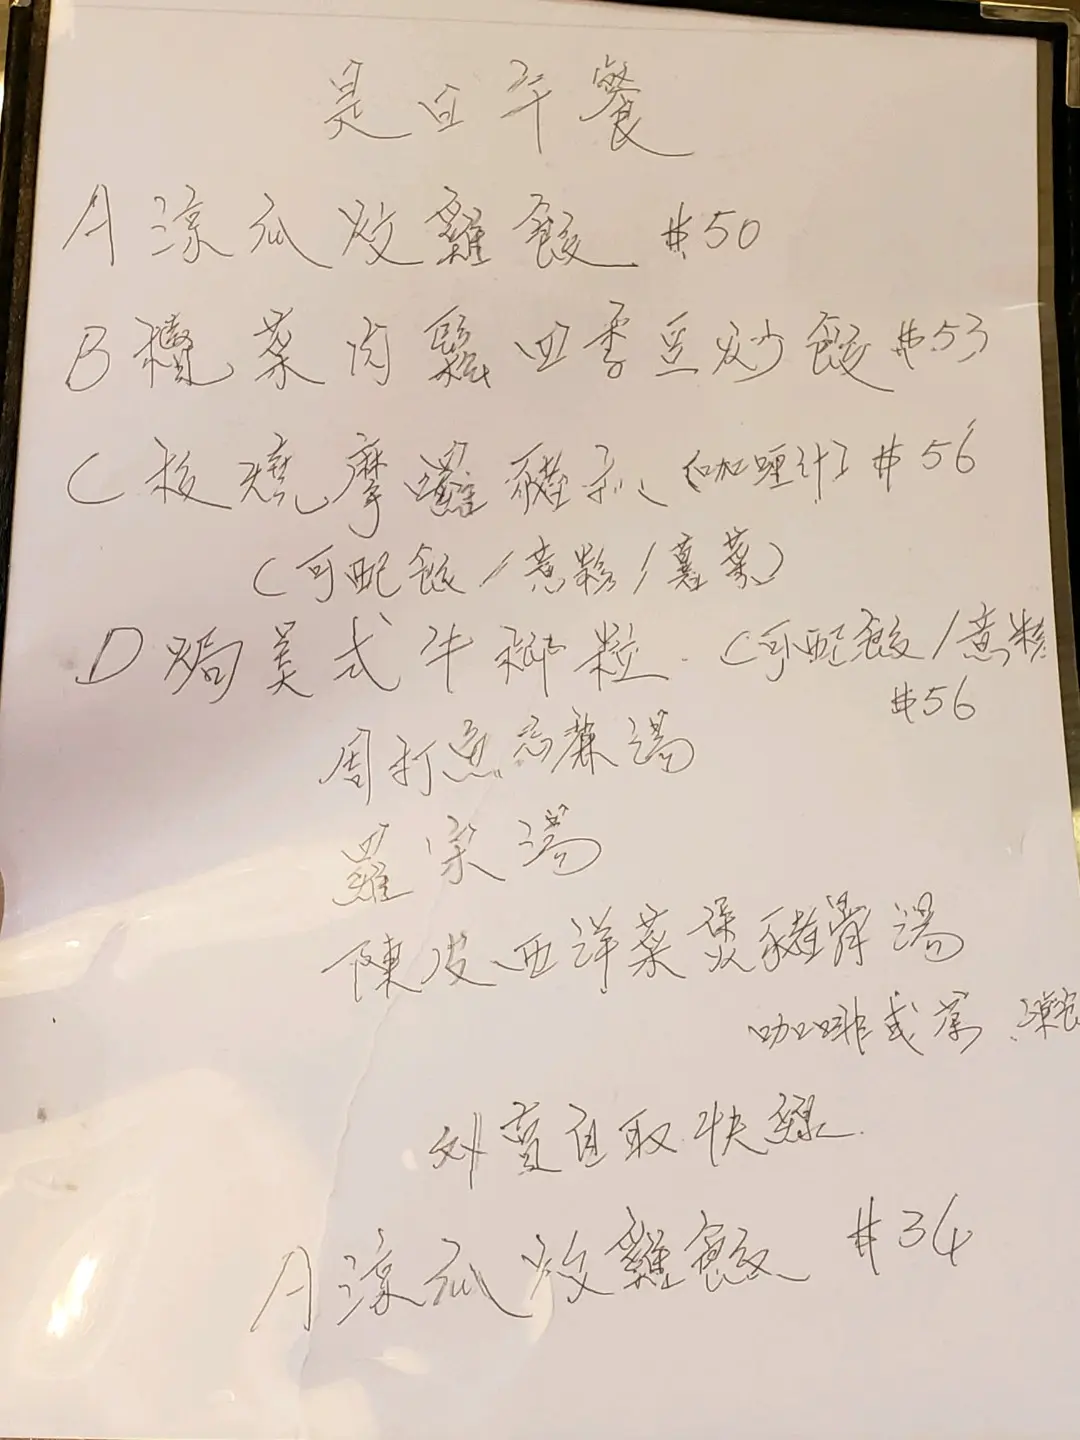 是日午餐
A 涼瓜炆雞飯 $50
B 欖菜肉鬆四季豆炒飯 $53
C 板燒摩囉豬扒(咖喱汁) $56
(可配飯/意粉/薯菜)
D 焗美式牛柳粒 (可配飯/意粉
$56
周打魚忌廉湯
羅宋湯
陳皮西洋菜煲豬骨湯
咖啡或茶
外賣自取快線
A 涼瓜炆雞飯 $34